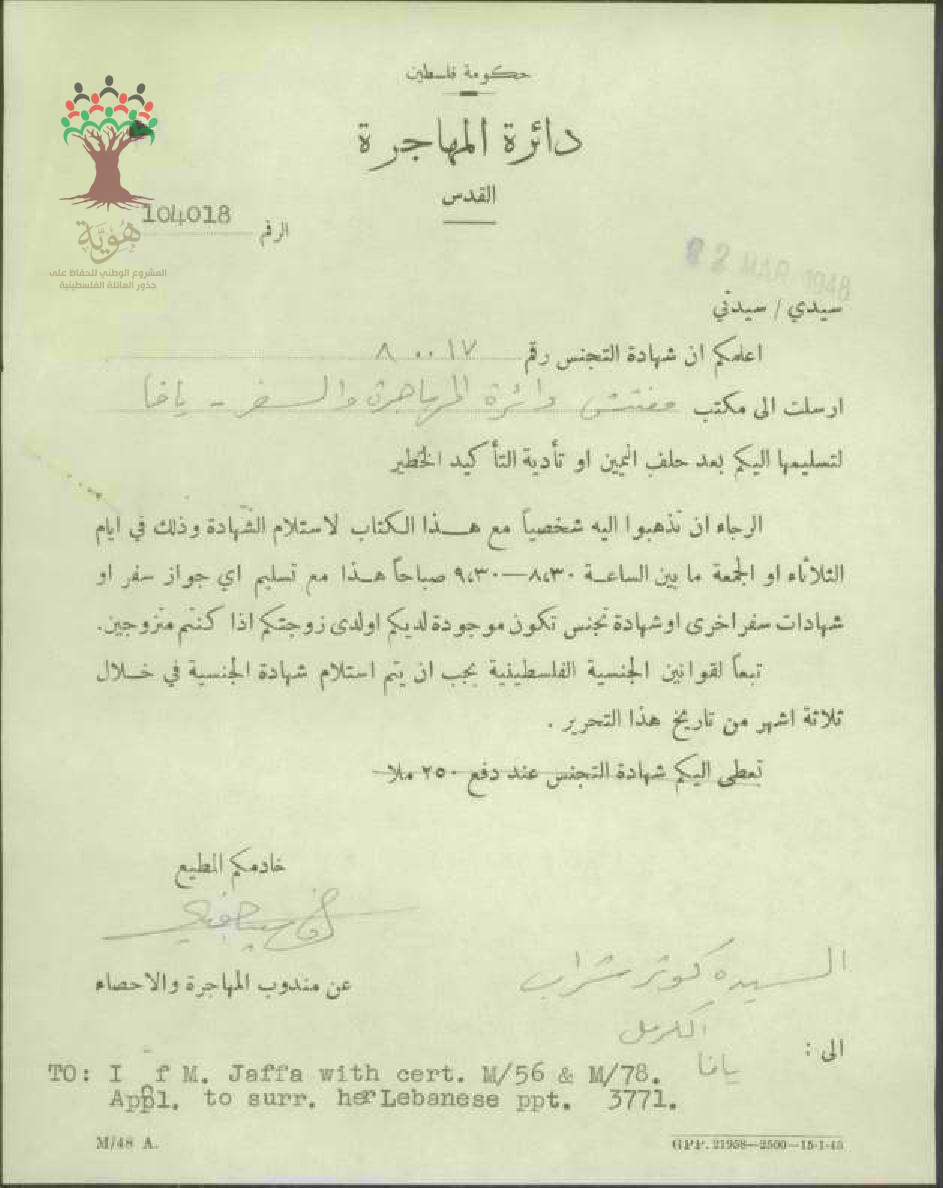 حكومة فلسطين
دائرة المهاجرة
القدس
هُوِيَّة
المشروع الوطني للحفاظ على
جذور العائلة الفلسطينية
الرقم 104018
2 MAR 1948
سيدي / سيدتي
اعلمكم ان شهادة التجنس رقم ٨٠٠١٧
ارسلت الى مكتب مفتش دائرة المهاجرة والسفر - يافا
لتسليمها اليكم بعد حلف اليمين او تأدية التأكيد الخطير
الرجاء ان تذهبوا اليه شخصياً مع هذا الكتاب لاستلام الشهادة وذلك في ايام
الثلاثاء او الجمعة ما بين الساعة ٨،٣٠—٩،٣٠ صباحاً هذا مع تسليم اي جواز سفر او
شهادات سفر اخرى او شهادة تجنس تكون موجودة لديكم او لدى زوجتكم اذا كنتم متزوجين.
تبعاً لقوانين الجنسية الفلسطينية يجب ان يتم استلام شهادة الجنسية في خلال
ثلاثة اشهر من تاريخ هذا التحرير .
تعطى اليكم شهادة التجنس عند دفع ٢٥٠ ملا
خادمكم المطيع
عن مندوب المهاجرة والاحصاء
السيده كوثر شراب
الكرمل
الى :
يافا
TO: I f M. Jaffa with cert. M/56 & M/78.
Appl. to surr. her Lebanese ppt. 3771.
M/48 A.
GPP. 21958—2500—15-1-45